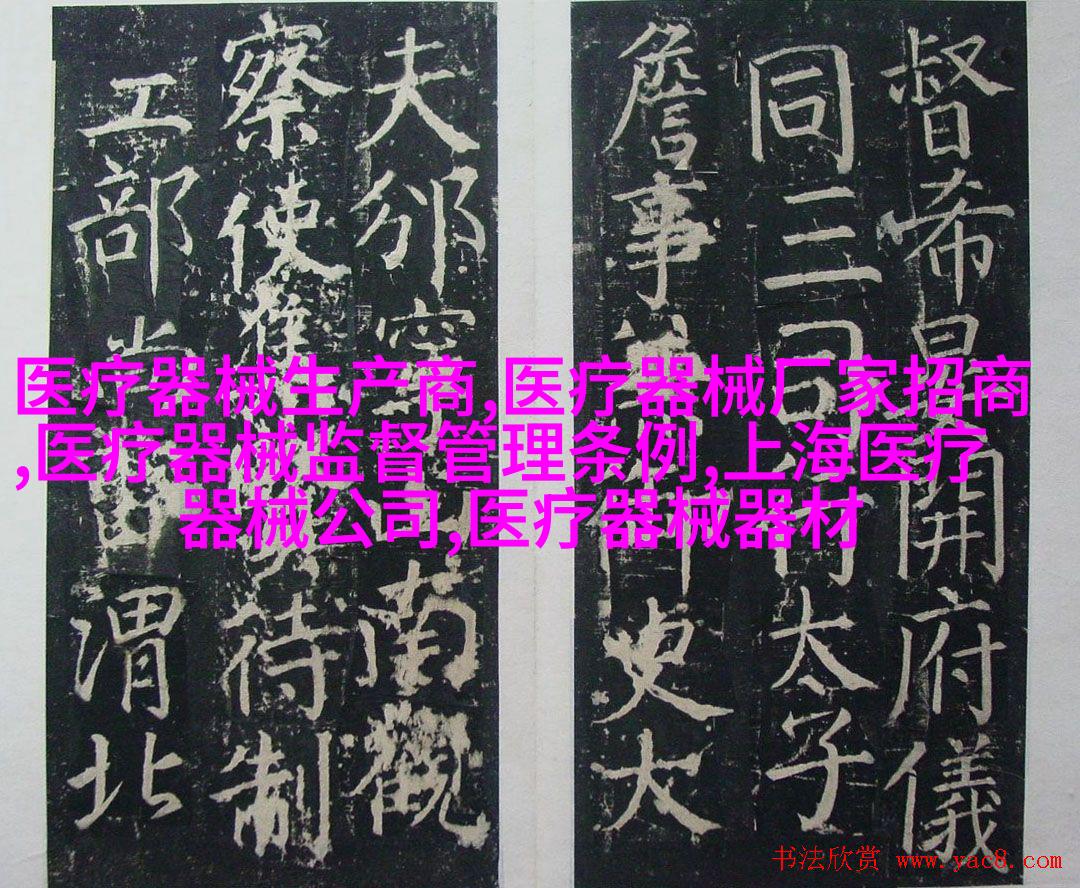 督希開府儀
同三司行太子
詹事兼御史大
夫邠寧南觀
察使待制
工部尚書渭北
医疗器械生产商,医疗器械厂家招商
,医疗器械监督管理条例,上海医疗
器械公司,医疗器械器材
书法欣赏 www.yac8.com